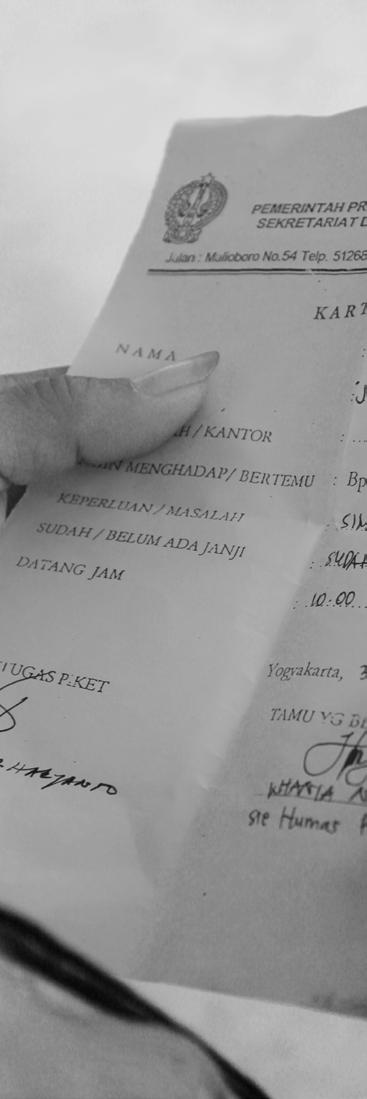 PEMERINTAH PR
SEKRETARIAT D
Jalan : Malioboro No.54 Telp. 51268
KART
NAMA :
: J
AH / KANTOR : ...
INGIN MENGHADAP / BERTEMU : Bp
KEPERLUAN / MASALAH : SIL
SUDAH / BELUM ADA JANJI : SUDAH
DATANG JAM : 10.00
Yogyakarta, 3
TUGAS PIKET
TAMU YG BE
HARJANTO
sie Humas